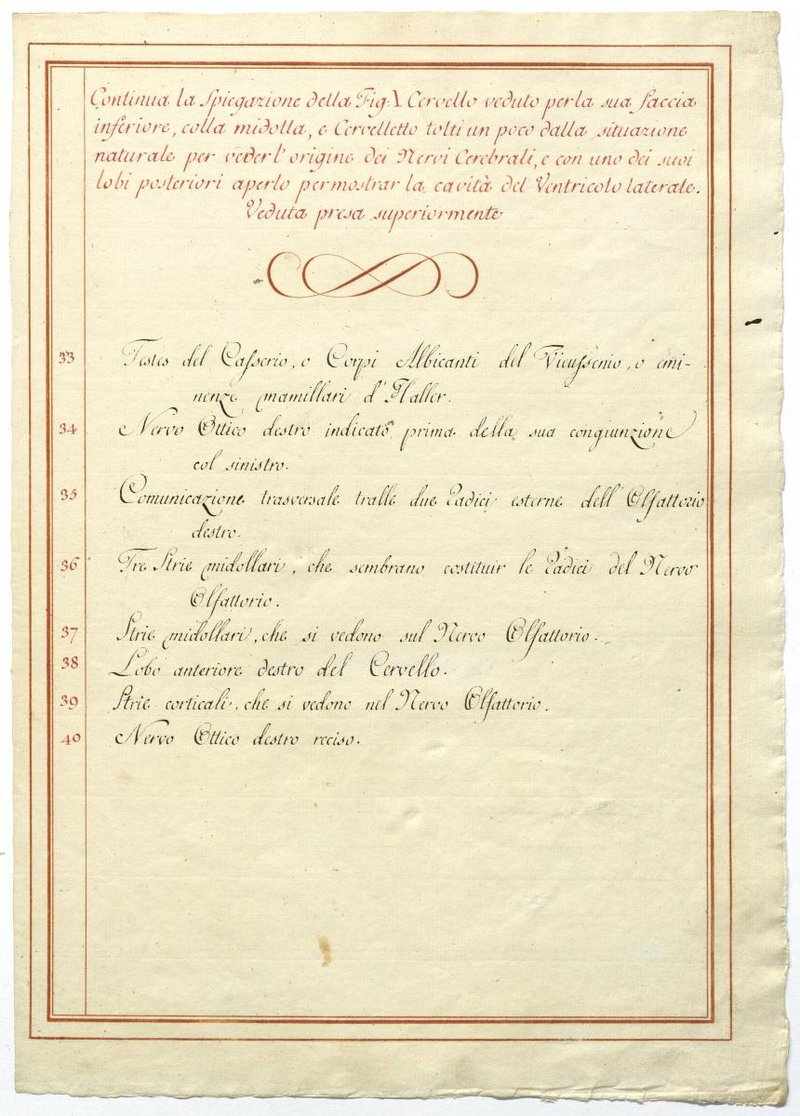 Continua la Spiegazione della Fig: V. Cervello veduto per la sua faccia
inferiore, colla midolla, e Cervelletto tolti un poco dalla situazione
naturale per veder l'origine dei Nervi Cerebrali, e con uno dei suoi
lobi posteriori aperto per mostrar la cavità del Ventricolo laterale.
Veduta presa superiormente
33 Testes del Casserio, o Corpi Albicanti del Vieussenio, o emi-
nenze mamillari d'Haller.
34 Nervo Ottico destro indicato prima della sua congiunzione
col sinistro.
35 Comunicazione trasversale tralle due Radici esterne dell'Olfattorio
destro.
36 Tre Strie midollari, che sembrano costituir le Radici del Nervo
Olfattorio.
37 Strie midollari, che si vedono sul Nervo Olfattorio.
38 Lobo anteriore destro del Cervello.
39 Strie corticali, che si vedono nel Nervo Olfattorio.
40 Nervo Ottico destro reciso.